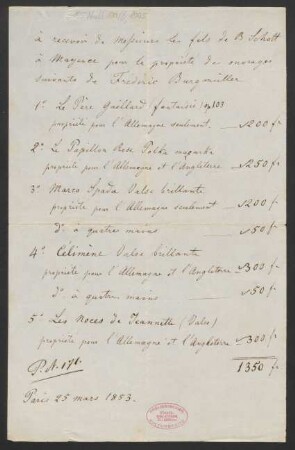 à recevoir de Messieurs les fils de B Schott
à Mayence pour la propriété de ouvrages
suivants de Frédéric Burgmüller
1° Le Père Gaillard (fantaisie) op 103
propriété pour l'Allemagne seulement. 200 fr
2° Le Papillon Rose Polka mazurka
propriété pour l'Allemagne et l'Angleterre 250 fr
3° Marco Spada Valse brillante
propriété pour l'Allemagne seulement 200 fr
d° à quatre mains 50 fr
4° Célimène Valse brillante
propriété pour l'Allemagne et l'Angleterre 300 fr
d° à quatre mains 50 fr
5° Les Noces de Jeannette (Valse)
propriété pour l'Allemagne et l'Angleterre 300 fr
1350 fr
Paris 25 mars 1853.